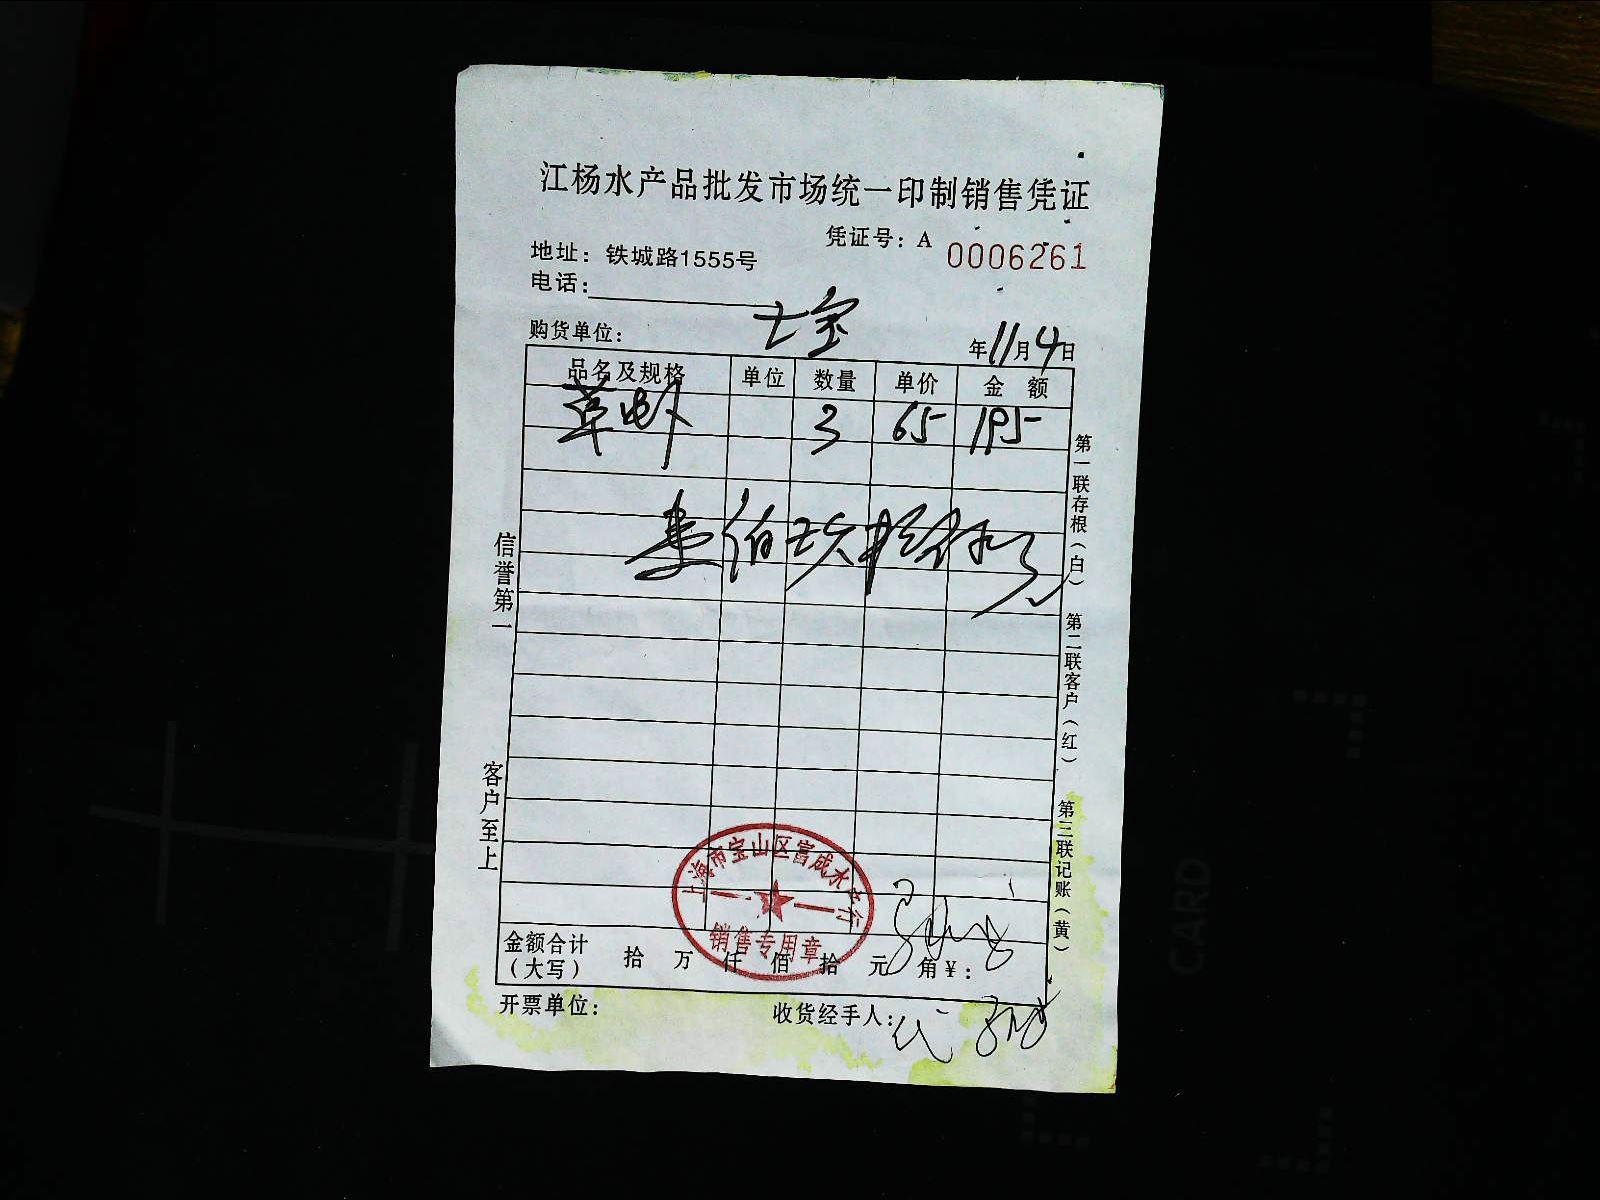 江杨水产品批发市场统一印制销售凭证
凭证号：A 0006261
地址：铁城路1555号
电话：
七宝
购货单位： 年11月4日
品名及规格 单位 数量 单价 金 额
草虾 3 65 195
壹佰玖拾伍元
信誉第一
客户至上
第一联存根（白） 第二联客户（红） 第三联记账（黄）
上海市宝山区富成水产行
销售专用章
金额合计（大写） 拾 万 仟 佰 拾 元 角￥：
开票单位： 收货经手人：代